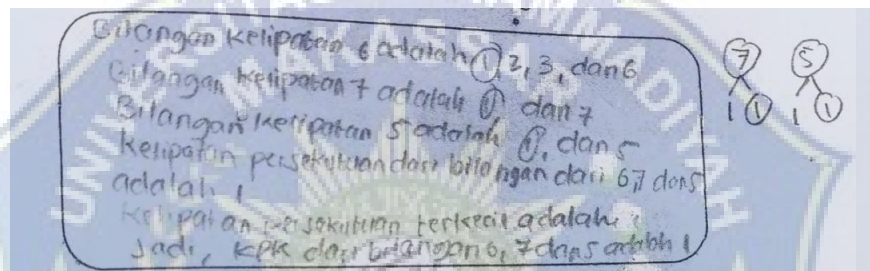 Bilangan kelipatan 6 adalah 1, 2, 3, dan 6
Bilangan kelipatan 7 adalah 1 dan 7
Bilangan kelipatan 5 adalah 1, dan 5
kelipatan persekutuan dari bilangan dari 6,7 dan 5
adalah 1
kelipatan persekutuan terkecil adalah 1
Jadi, KPK dari bilangan 6, 7 dan 5 adalah 1
7 5
1 1 1 1
UNIVERSITAS MUHAMMADIYAH
MAKASSAR